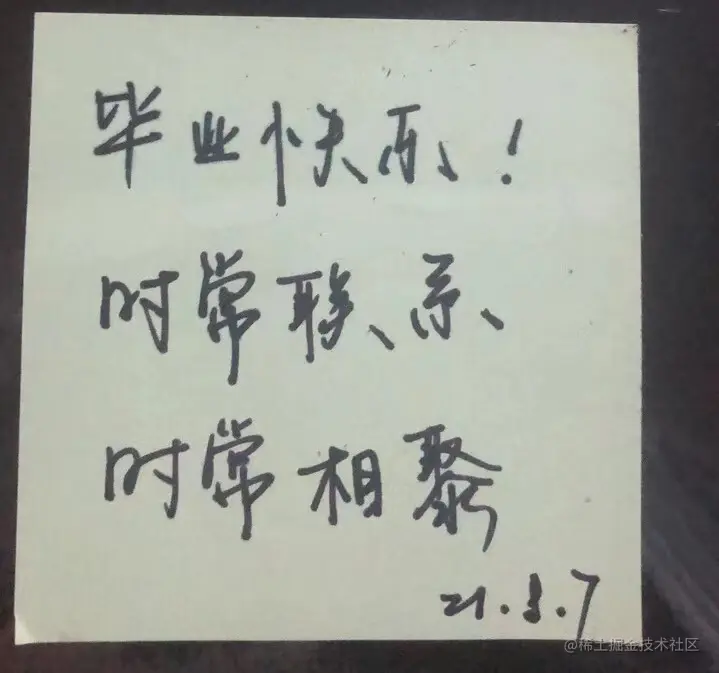 毕业快乐!
时常联系
时常相聚
21.8.7
@稀土掘金技术社区